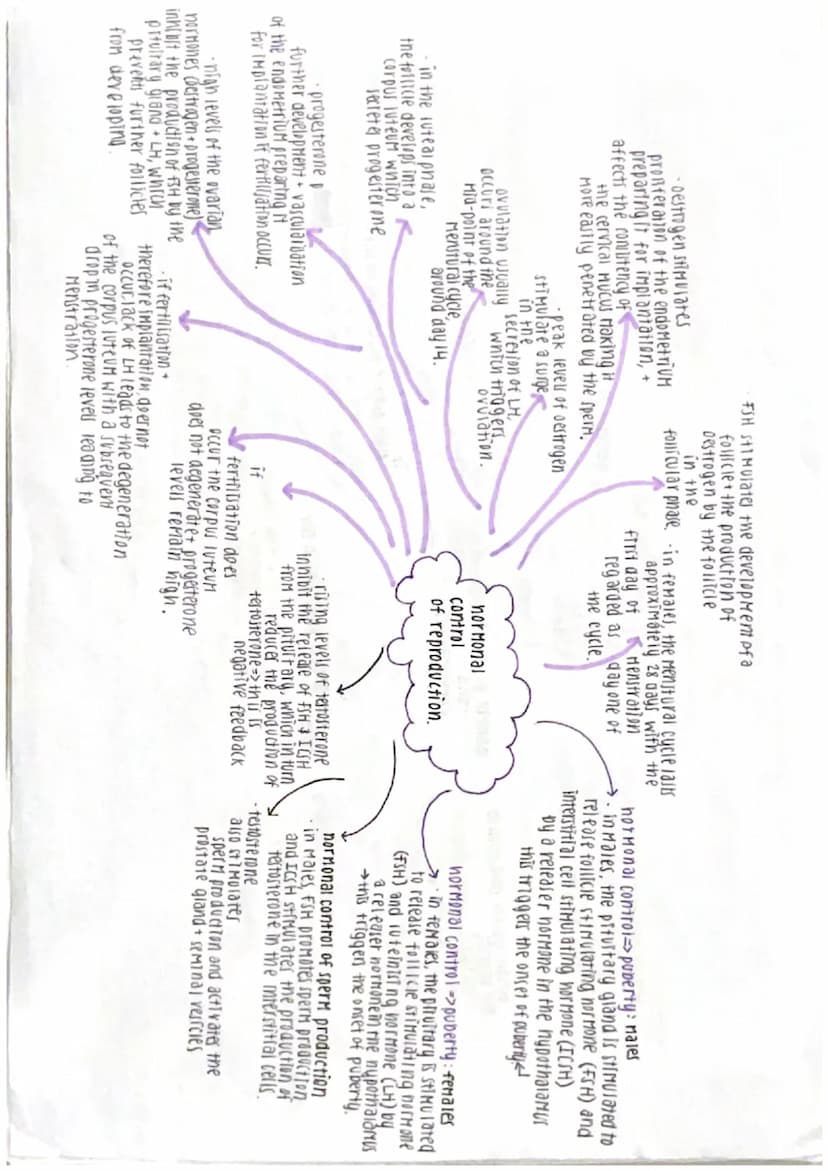 hormonal
control
of reproduction.
hormonal control => puberty: males
· in males, the pituitary gland is stimulated to
release follicle stimulating hormone (FSH) and
interstitial cell stimulating hormone (ICSH)
by a releaser hormone in the hypothalamus
this triggers the onset of puberty
hormonal control => puberty: females
· in females, the pituitary is stimulated
to release follicle stimulating hormone
(FSH) and luteinising hormone (LH) by
a releaser hormone in the hypothalamus
→ this triggers the onset of puberty.
hormonal control of sperm production
· in males, FSH promotes sperm production
and ICSH stimulates the production of
testosterone in the interstitial cells.
· testosterone
also stimulates
sperm production and activates the
prostate gland + seminal vesicles
· rising levels of testosterone
inhibit the release of FSH & ICSH
from the pituitary, which in turn
reduces the production of
testosterone => this is
negative feedback
· in females, the menstrual cycle lasts
approximately 28 days with the
first day of menstration
regarded as day one of
the cycle.
· FSH stimulates the development of a
follicle + the production of
oestrogen by the follicle
in the
follicular phase.
· oestrogen stimulates
proliferation of the endometrium
preparing it for implantation, +
affects the consistency of
the cervical mucus making it
more easily penetrated by the sperm.
· peak levels of oestrogen
stimulate a surge
in the
secretion of LH,
which triggers
ovulation.
ovulation usually
occurs around the
mid-point of the
menstrual cycle,
around day 14.
· in the luteal phase,
the follicle develops into a
corpus luteum which
secretes progesterone
· progesterone p
further development + vascularisation
of the endometrium preparing it
for implantation if fertilisation occurs.
· high levels of the ovarian
hormones (oestrogen + progesterone)
inhibit the production of FSH by the
pituitary gland + LH, which
prevents further follicles
from developing.
· if fertilisation +
therefore implantation does not
occur, lack of LH leads to the degeneration
of the corpus luteum with a subsequent
drop in progesterone levels leading to
menstration.
if
fertilisation does
occur the corpus luteum
does not degenerate + progesterone
levels remain high.